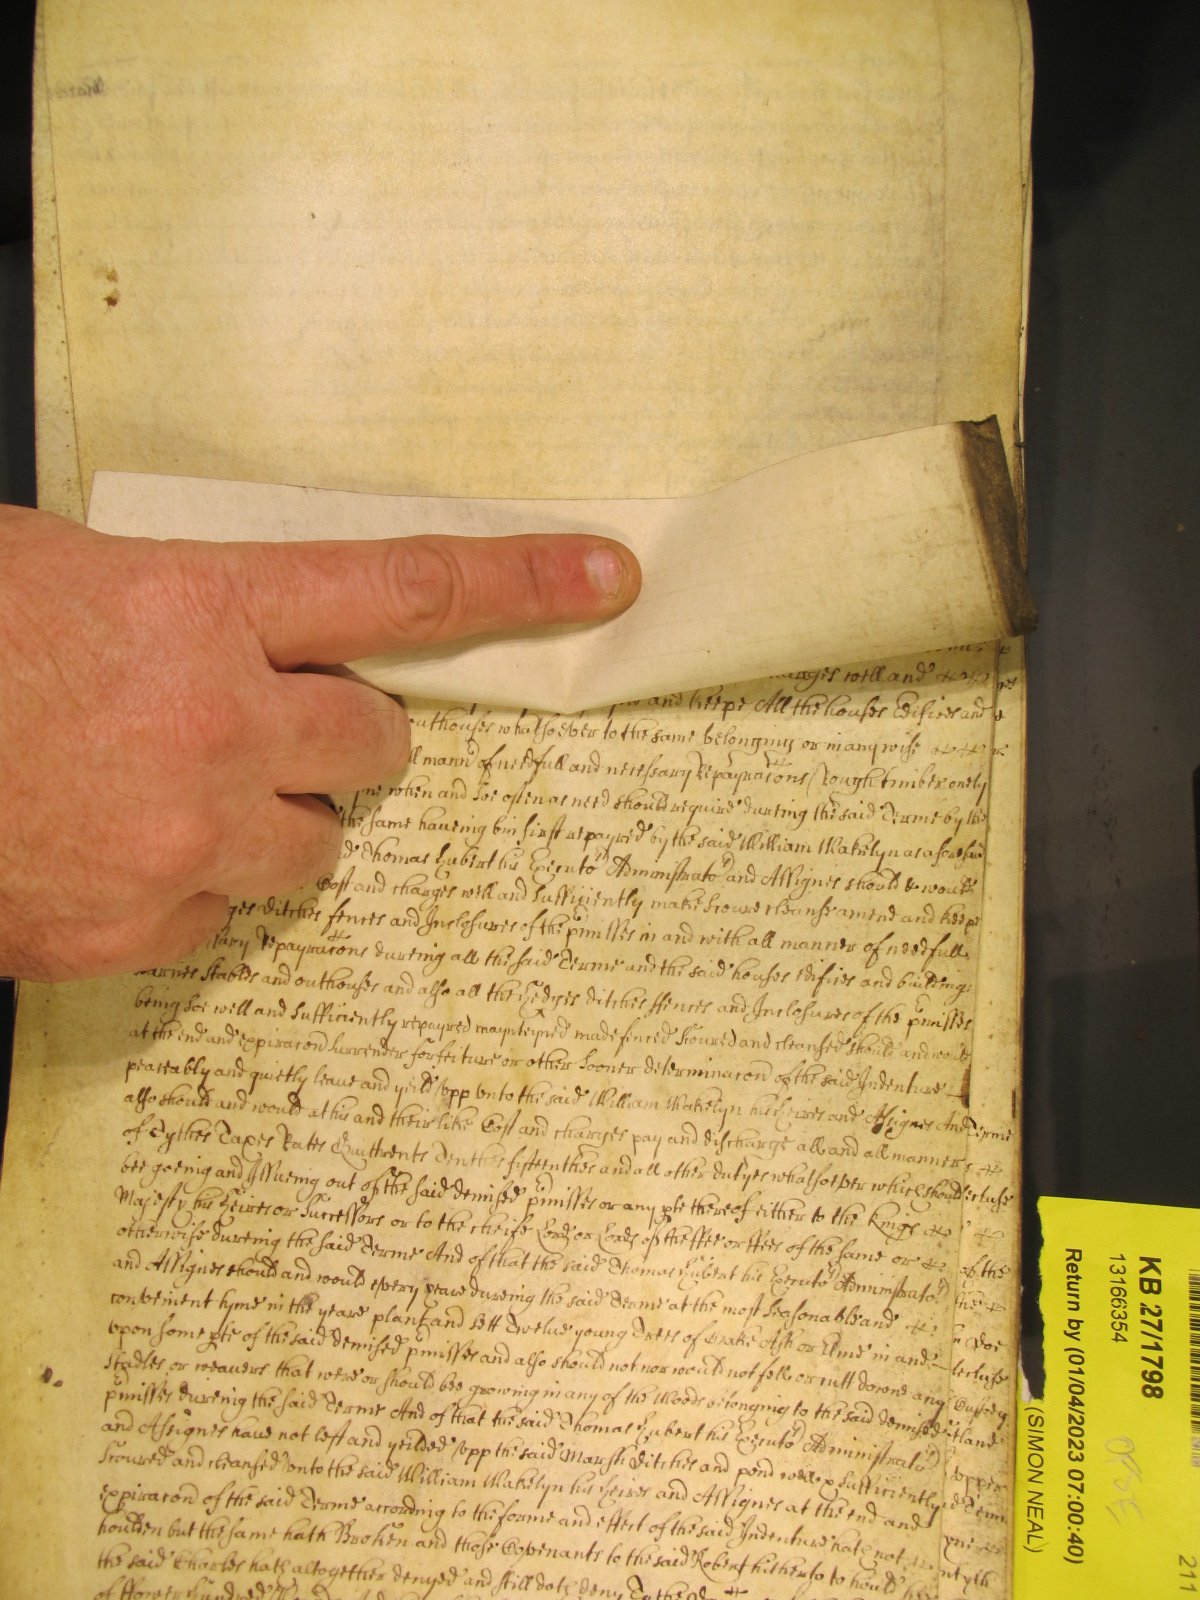 charges well and
and keepe All the houses Edifices and
outhouses whatsoever to the same belonging or in any wise
ll mann' of needfull and necessary Repayracons (rough timber onely
me when and soe often as need should require dureing the said Terme by the
the same haveing bin first repayred by the said William Wakelyn as aforesaid
Thomas Hubert his Executo' Administrato' and Assignes should & would
Cost and charges well and sufficiently make scoure cleanse amend and keepe
ges Ditches fences and Inclosures of the p'misses in and with all manner of needfull
Repayracons dureing all the said Terme and the said houses edifices and building
Barnes Stables and outhouses and also all the Hedges ditches ffences and Inclosures of the p'misses
being soe well and sufficiently repayred maynteyned made fenced scoured and cleansed should and would
at the end and expiracon surrender forfeiture or other sooner determinacon of the said Indenture
peaceably and quietly leave and yeild upp unto the said William Wakelyn his heires and Assignes And
also should and would at his and their like Cost and charges pay and discharge all and all manner
of Tythes Taxes Rates Quittrents Tenthes fifteenthes and all other dutyes whatsoever which should
bee goeing and Issueing out of the said demised p'misses or any p'te thereof either to the Kings
Majesty his heires or Successors or to the cheife Lord or Lords of the ffee or ffees of the same or
otherwise dureing the said Terme And of that the said Thomas Hubert his Executo' Administrato'
and Assignes should and would every yeare dureing the said Terme at the most seasonable and
convenient tyme in the yeare plant and sett Twelve young Trees of Oake Ash or Elme in and
upon some p'te of the said demised p'misses and also should not nor would not fell or cutt downe any
Stadles or weavers that were or should bee growing in any of the Woods belonging to the said demised
p'misses dureing the said Terme And of that the said Thomas Hubert his Executo' Administrato'
and Assignes have not left and yeilded upp the said Marsh ditches and pond well & sufficiently
scoured and cleansed unto the said William Wakelyn his heires and Assignes at the end and
expiracon of the said Terme according to the forme and effect of the said Indenture hath not
houlden but the same hath Broken and those Covenants to the said Robert hitherto to hould
the said Charles hath altogether denyed and still doth deny To the
KB 27/1798
13166354
Return by (01/04/2023 07:00:40)
(SIMON NEAL)
211